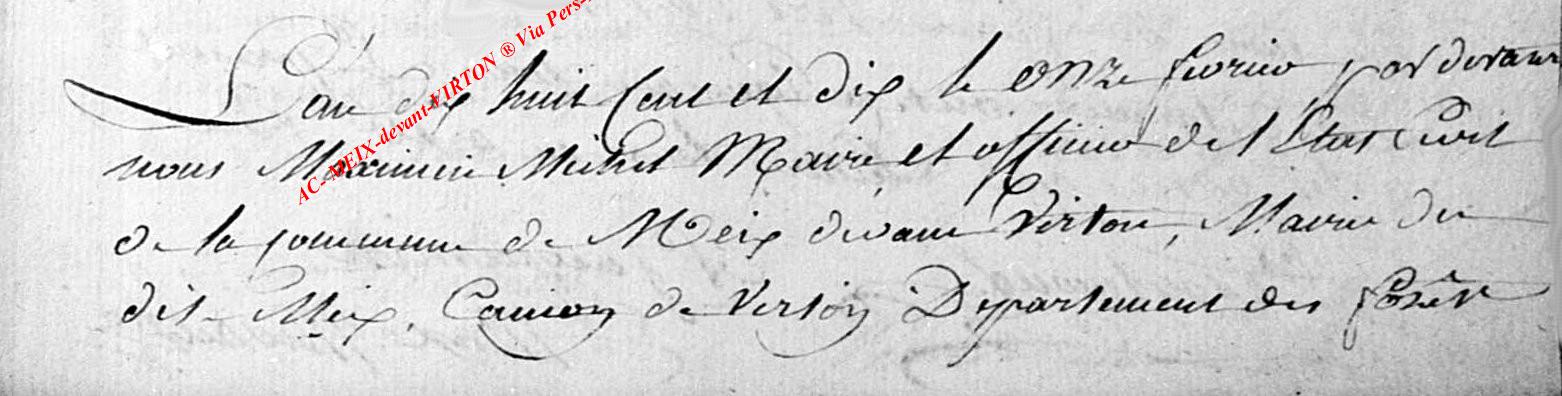 AC- MEIX-devant-VIRTON ® Via Pers-
L'an dix huit Cent et dix le onze fevrier, par devant
nous Maximin Michel Maire et officier de l'Etat Civil
de la commune de Meix devant Virton, Mairie du
dit Meix, Canton de Virton Departement des forêts